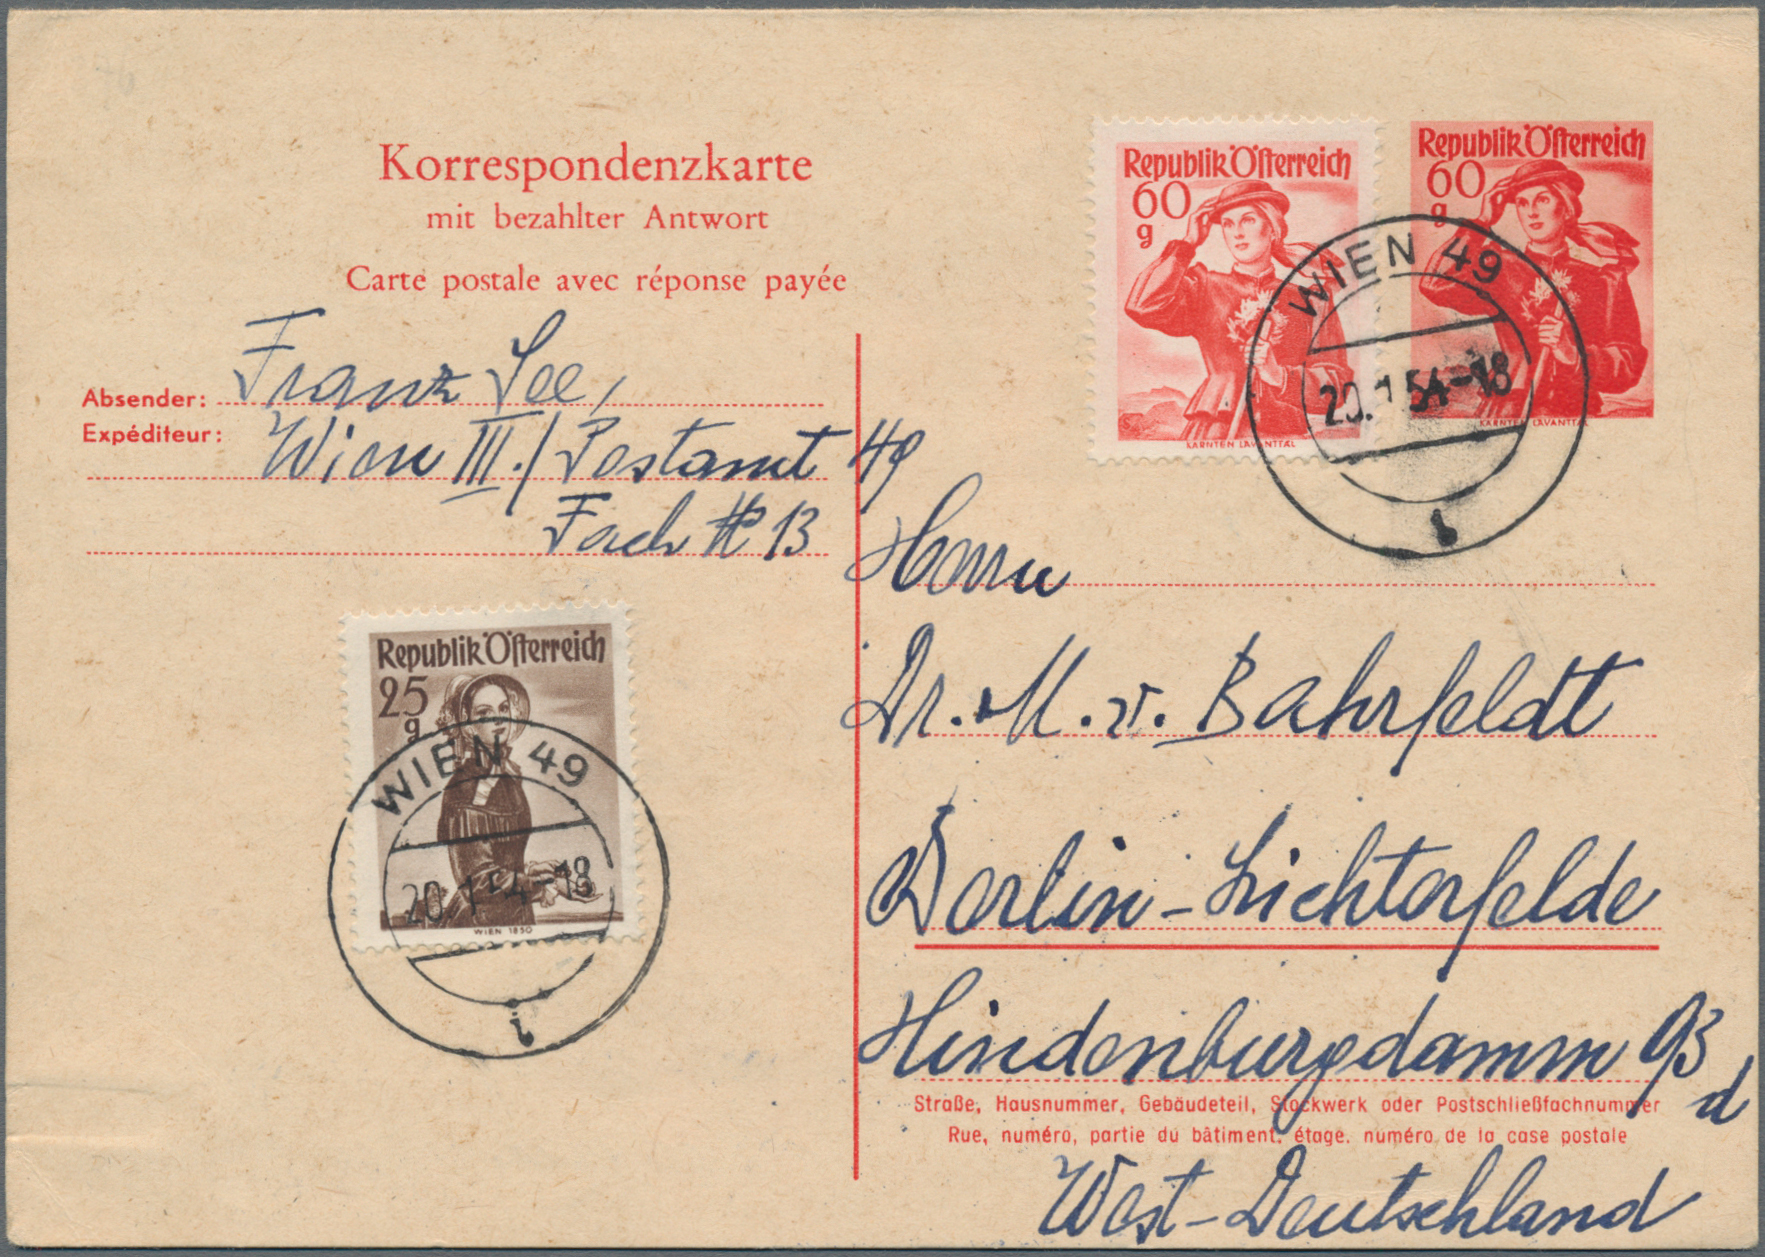 Korrespondenzkarte
mit bezahlter Antwort
Carte postale avec réponse payée
Absender: Franz See,
Expéditeur: Wien III./Postamt 49
Fach # 13
Republik Österreich
60
g
KÄRNTEN LAVANTTAL
Republik Österreich
60
g
KÄRNTEN LAVANTTAL
WIEN 49
20.1.54-18
Republik Österreich
25
g
WIEN 1850
WIEN 49
20.1.54-18
Herrn
Dr. M. v. Bahrfeldt
Berlin-Lichterfelde
Hindenburgdamm 93
d
Straße, Hausnummer, Gebäudeteil, Stockwerk oder Postschließfachnummer
Rue, numéro, partie du bâtiment, étage, numéro de la case postale
West-Deutschland